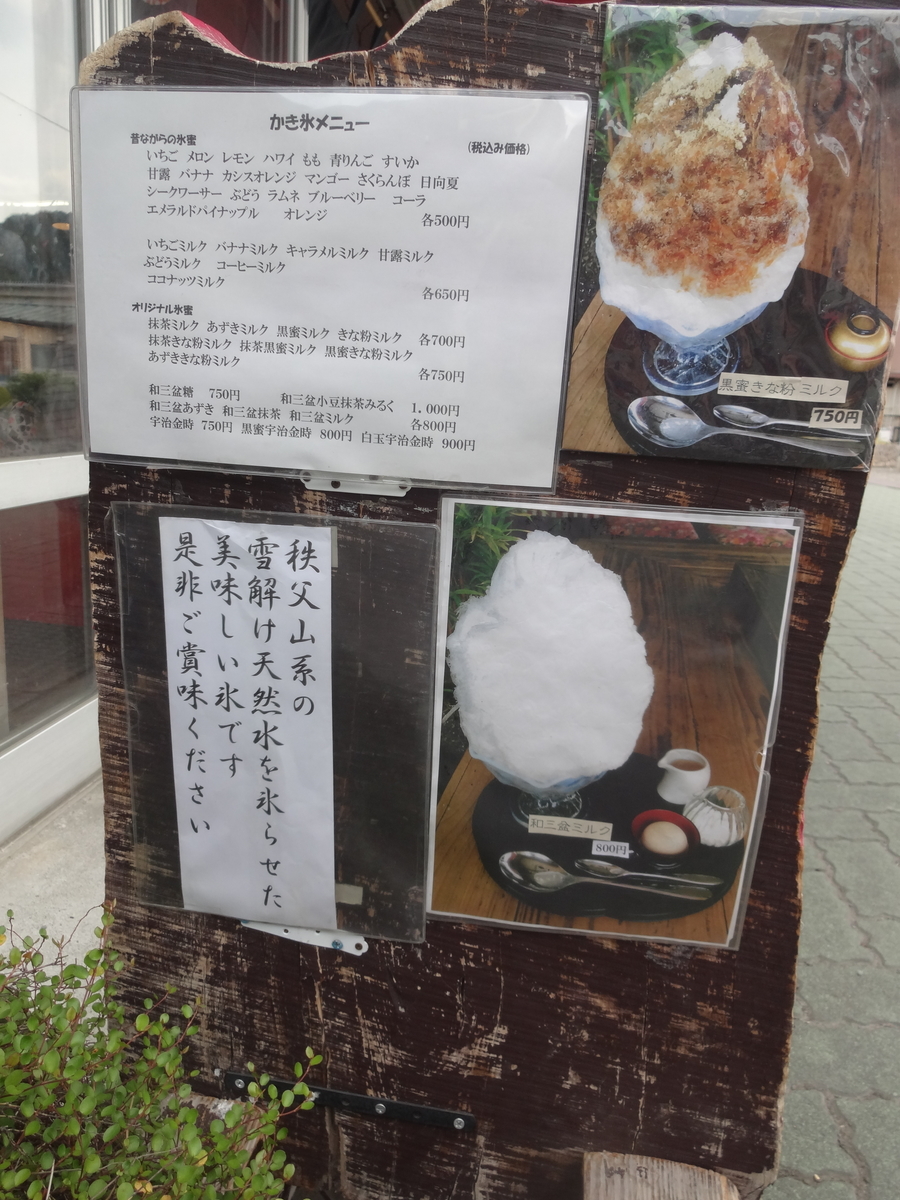 かき氷メニュー
昔ながらの氷蜜 (税込み価格)
いちご メロン レモン ハワイ もも 青りんご すいか
甘露 バナナ カシスオレンジ マンゴー さくらんぼ 日向夏
シークワーサー ぶどう ラムネ ブルーベリー コーラ
エメラルドパイナップル オレンジ 各500円
いちごミルク バナナミルク キャラメルミルク 甘露ミルク
ぶどうミルク コーヒーミルク
ココナッツミルク
各650円
オリジナル氷蜜
抹茶ミルク あずきミルク 黒蜜ミルク きな粉ミルク 各700円
抹茶きな粉ミルク 抹茶黒蜜ミルク 黒蜜きな粉ミルク
あずききな粉ミルク
各750円
和三盆糖 750円 和三盆小豆抹茶みるく 1.000円
和三盆あずき 和三盆抹茶 和三盆ミルク 各800円
宇治金時 750円 黒蜜宇治金時 800円 白玉宇治金時 900円
黒蜜きな粉 ミルク
750円
秩父山系の
雪解け天然水を氷らせた
美味しい氷です
是非ご賞味ください
和三盆ミルク
800円